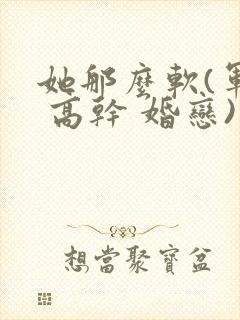 她那麼軟(軍
高幹 婚戀)
想當聚寶盆